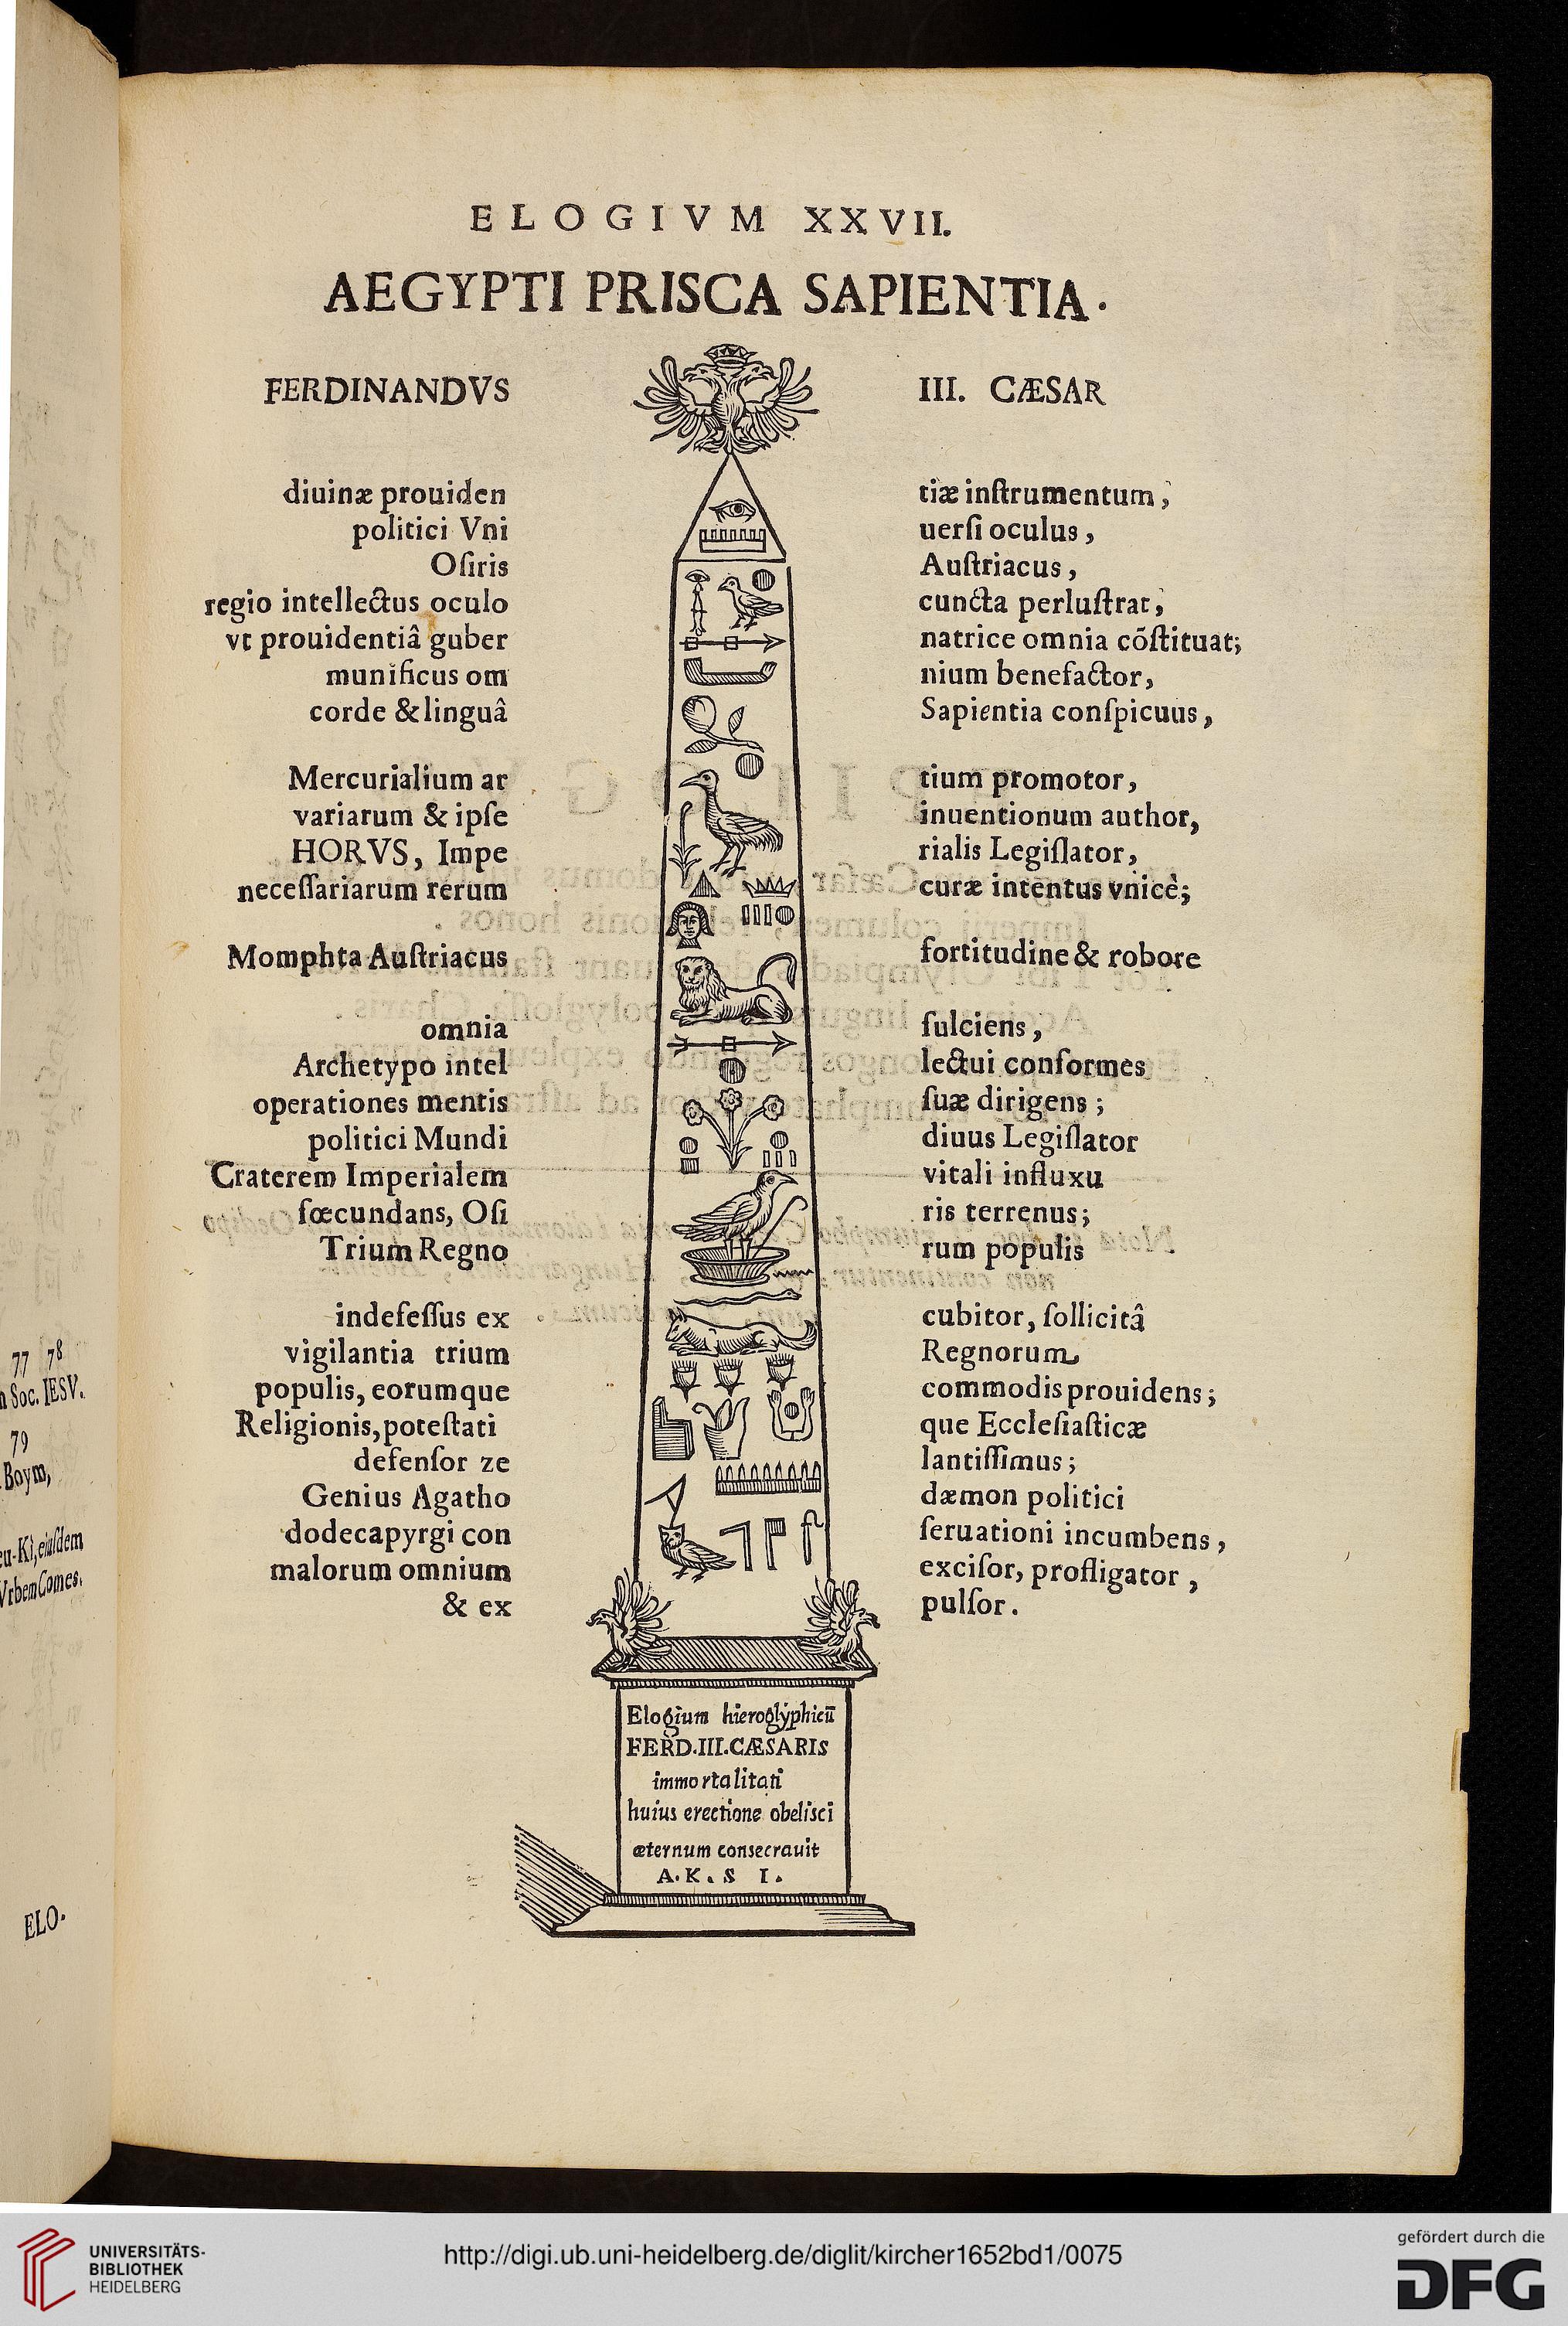 ELOGIVM XXVII.
AEGYPTI PRISCA SAPIENTIA.
FERDINANDVS III. CÆSAR
diuinæ prouiden tiæ inſtrumentum,
politici Vni uerſi oculus,
Oſiris Auſtriacus,
regio intellectus oculo cuncta perluſtrat,
vt prouidentiâ guber natrice omnia cõſtituat;
munificus om nium benefactor,
corde & linguâ Sapientia conſpicuus,
Mercurialium ar tium promotor,
variarum & ipſe inuentionum author,
HORVS, Impe rialis Legiſlator,
neceſſariarum rerum curæ intentus vnicè;
Momphta Auſtriacus fortitudine & robore
omnia fulciens,
Archetypo intel lectui conformes
operationes mentis ſuæ dirigens;
politici Mundi diuus Legiſlator
Craterem Imperialem vitali influxu
fœcundans, Oſi ris terrenus;
Trium Regno rum populis
indefeſſus ex cubitor, ſollicitâ
vigilantia trium Regnorum
populis, eorumque commodis prouidens;
Religionis, poteſtati que Eccleſiaſticæ
defenſor ze lantiſſimus;
Genius Agatho dæmon politici
dodecapyrgi con ſeruationi incumbens,
malorum omnium exciſor, profligator,
& ex pulſor.
Elogium hieroglyphicū
FERD.III.CÆSARIS
immortalitati
huius erectione obelisci
æternum consecrauit
A. K. S I.
77 78
Soc. IESV.
79
Boym,
eu-Ki, eiuſdem
Vrbem Comes.
ELO-
UNIVERSITÄTS-
BIBLIOTHEK
HEIDELBERG
http://digi.ub.uni-heidelberg.de/diglit/kircher1652bd1/0075
gefördert durch die
DFG